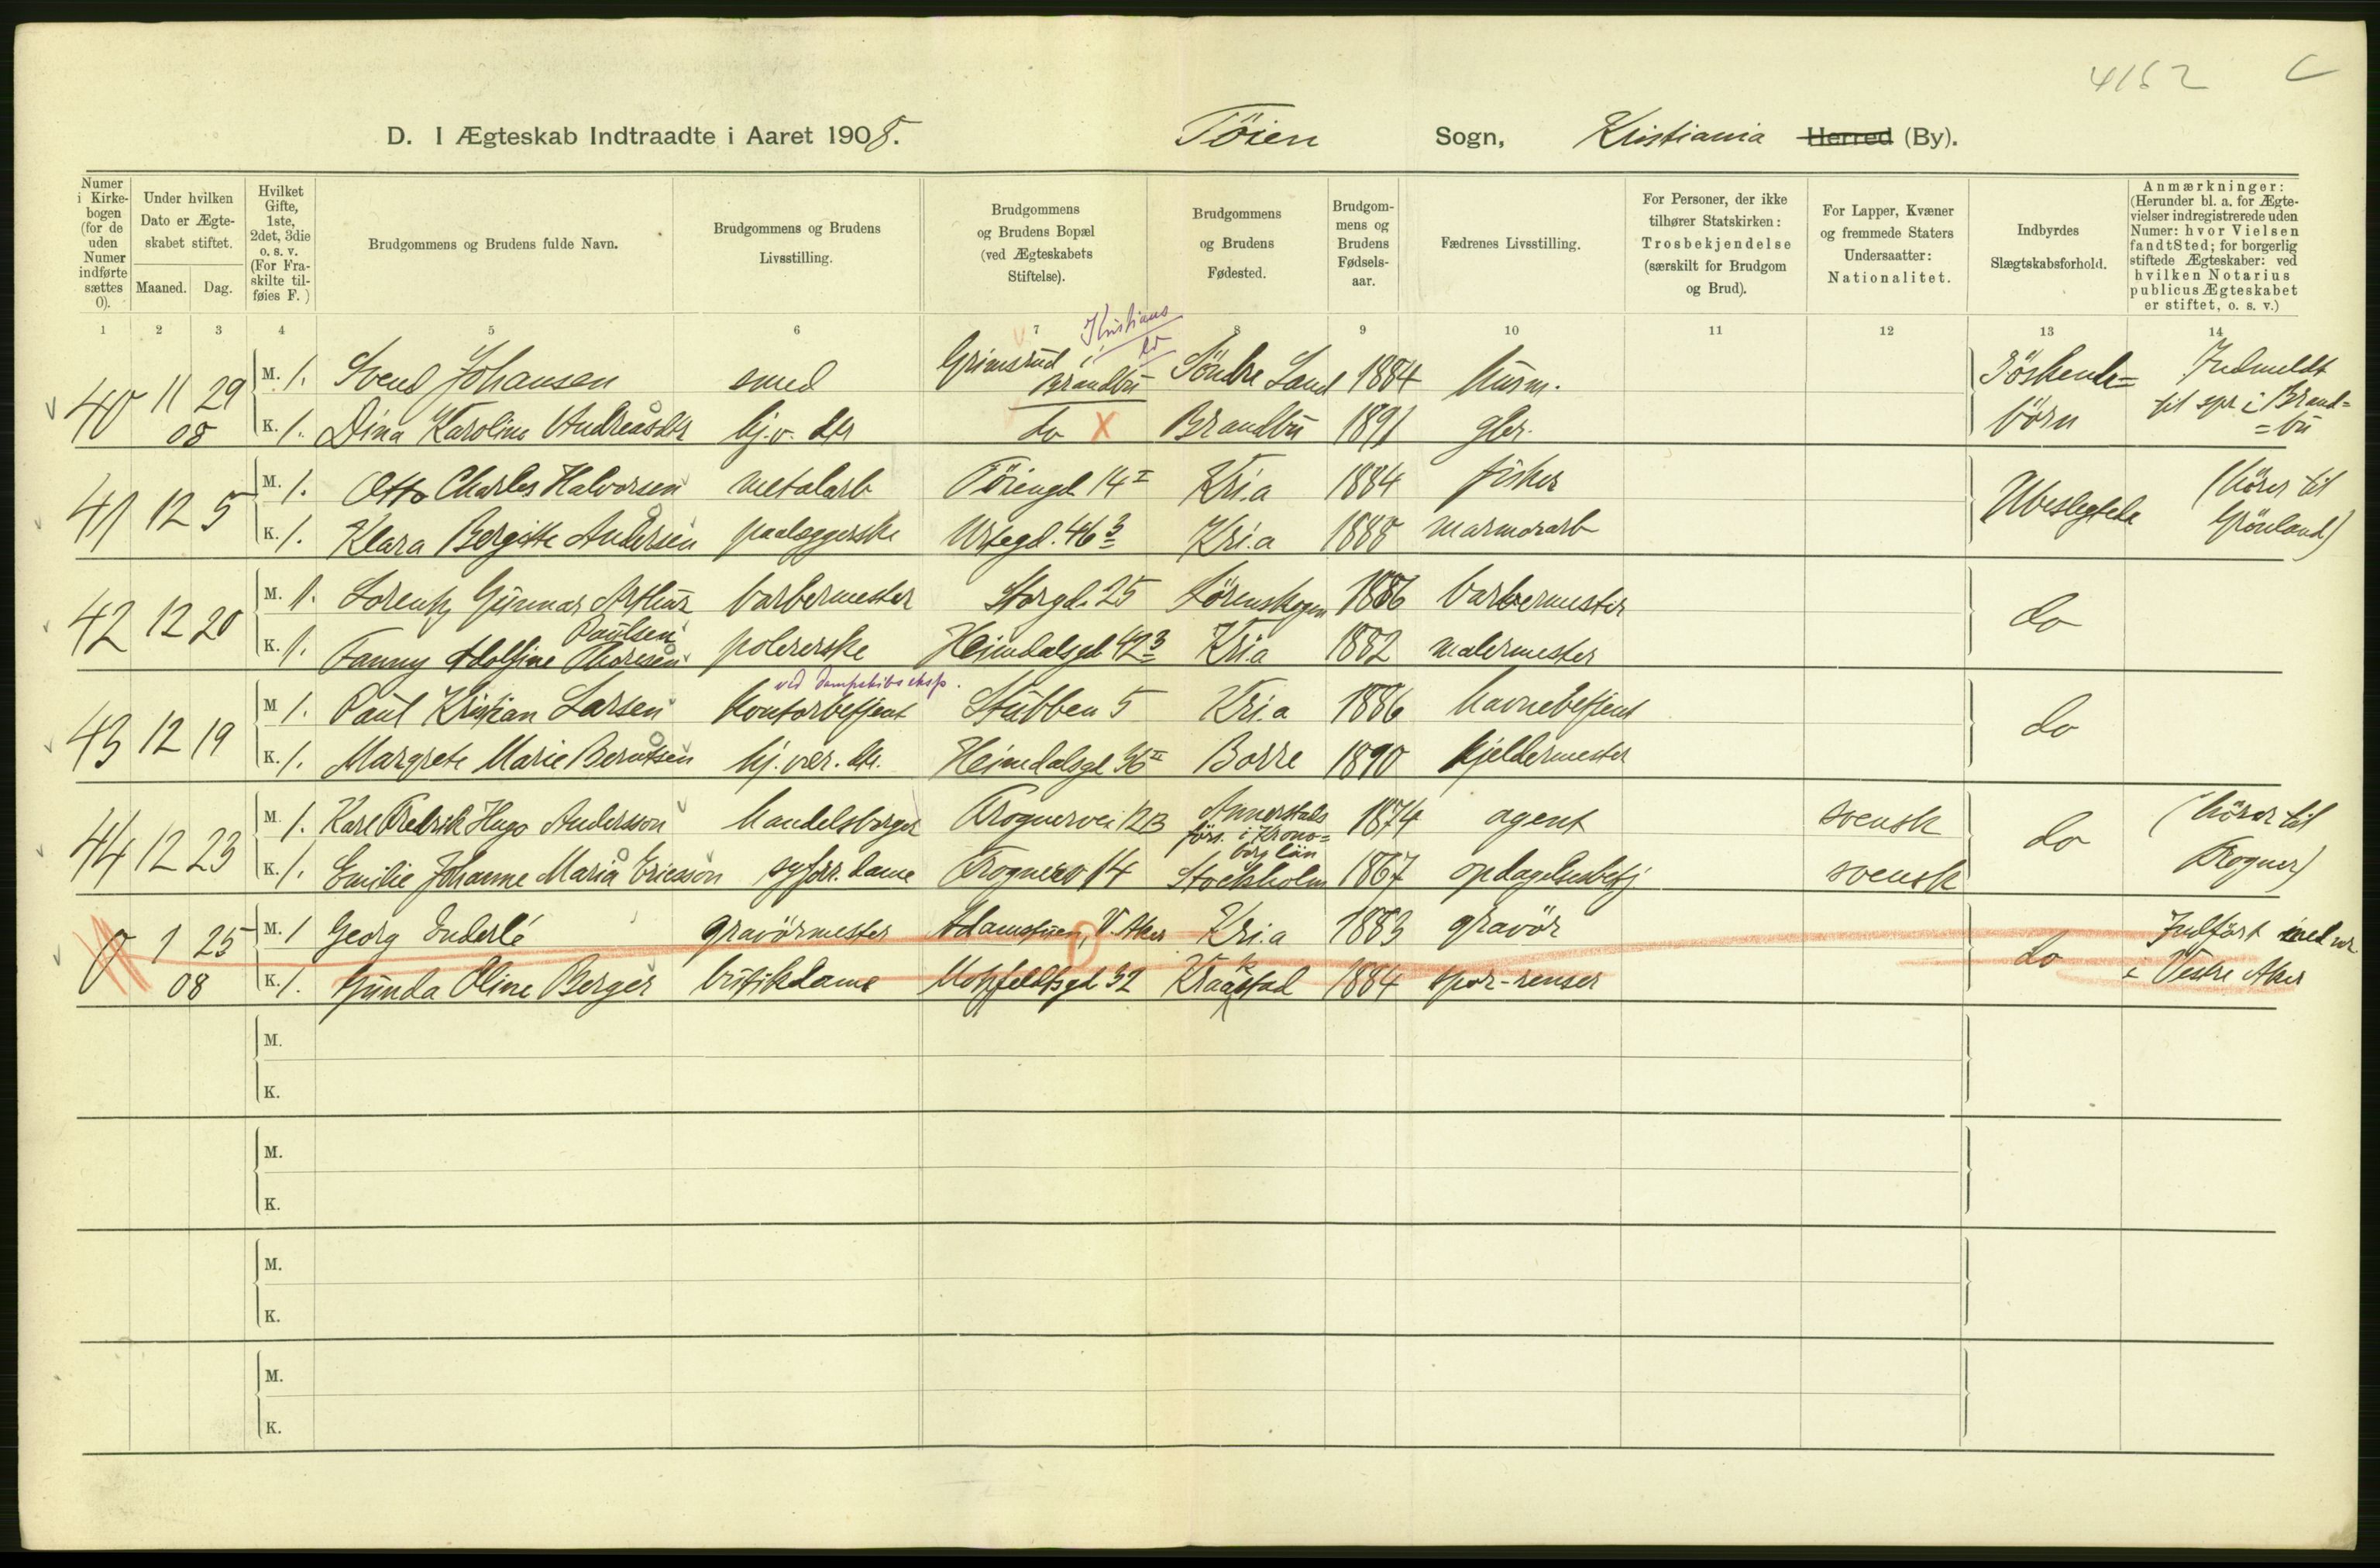 4152
D. I Ægteskab Indtraadte i Aaret 1908. Töien Sogn, Kristiania Herred (By).
Numer i Kirke-bogen (for de uden Numer indførte sættes 0).
Under hvilken Dato er Ægte-skabet stiftet.
Maaned. Dag.
Hvilket Gifte, 1ste, 2det, 3die o. s. v. (For Fra-skilte til-føies F.)
Brudgommens og Brudens fulde Navn.
Brudgommens og Brudens Livsstilling.
Brudgommens og Brudens Bopæl (ved Ægteskabets Stiftelse).
Brudgommens og Brudens Fødested.
Brudgom-mens og Brudens Fødsels-aar.
Fædrenes Livsstilling.
For Personer, der ikke tilhører Statskirken: Trosbekjendelse (særskilt for Brudgom og Brud).
For Lapper, Kvæner og fremmede Staters Undersaatter: Nationalitet.
Indbyrdes Slægtskabsforhold.
Anmærkninger: (Herunder bl. a. for Ægte-vielser indregistrerede uden Numer: hvor Vielsen fandt Sted; for borgerlig stiftede Ægteskaber: ved hvilken Notarius publicus Ægteskabet er stiftet, o. s. v.)
1 2 3 4 5 6 7 8 9 10 11 12 13 14
Kristians
40 11 29 M. 1. Svend Johansen smed Grimsrud i Brandbu Söndre Land 1884 husm. Söskende= Indmeldt
08 K. 1. Dina Karoline Andreasdtr hj. v. dtr do X Brandbu 1891 gbr. börn til spr i Brand=
=bu
41 12 5 M. 1. Otto Charles Halvorsen metalarb Töiengd. 14 II Kr.i.a 1884 fisker Ubeslegtede (hörer til
K. 1. Klara Bergitte Andersen paalæggerske Urtegd. 46 3 Kr.i.a 1888 marmorarb Grönland)
42 12 20 M. 1. Lorentz Gunnar Arthur barbermester Storgd. 25 Lörenskogen 1886 barbermester do
Paulsen
K. 1. Fanny Adolfine Thoresen polererske Heimdalsgd 42 3 Kr.i.a 1882 malermester
ved dampskibseksp.
43 12 19 M 1. Paul Kristian Larsen kontorbetjent Stubben 5 Kr.i.a 1886 havnebetjent do
K. 1. Margrete Marie Berntsen hj. vær. dtr. Heimdalsgd 36 II Borre 1890 kjeldermester
44 12 23 M. 1. Karl Fredrik Hugo Andersson handelsborger Frognervei 12B Annerstads förs. i Krono=borg län 1874 agent svensk do (hörer til
K. 1. Emilie Johanne Maria Ericsson syforr. dame Frognerv 14 Stockholm 1867 opdagelsesbetj svensk Frogner)
0 1 25 M. 1 Georg Enderlé gravörmester Adamstuen, V. Aker Kr.i.a 1883 gravör do Indfört med nr
08 K. 1. Gunda Oline Berger butikdame Motzfeldtsgd 32 Kraakstad 1884 spor-renser i Vestre Aker
M.
K.
M.
K.
M.
K.
M.
K.